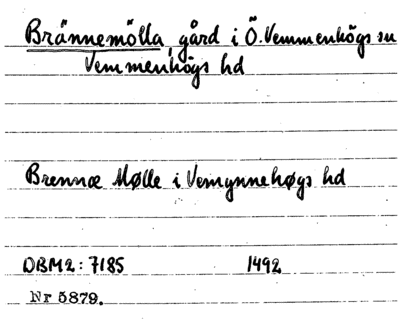 Brännemölla, gård i Ö. Vemmenhögs sn
Vemmenhögs hd
Brennæ Mølle i Vemynnehøgs hd
DBM2: 7185 1492
Nr 5879.